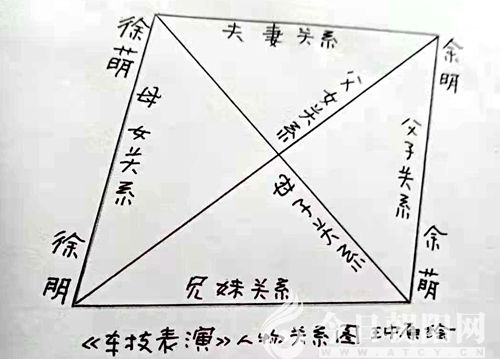 徐萌
夫妻关系
余明
母女关系
父女关系
父子关系
母子关系
徐明
兄妹关系
余萌
《车技表演》人物关系图
今日朝阳网